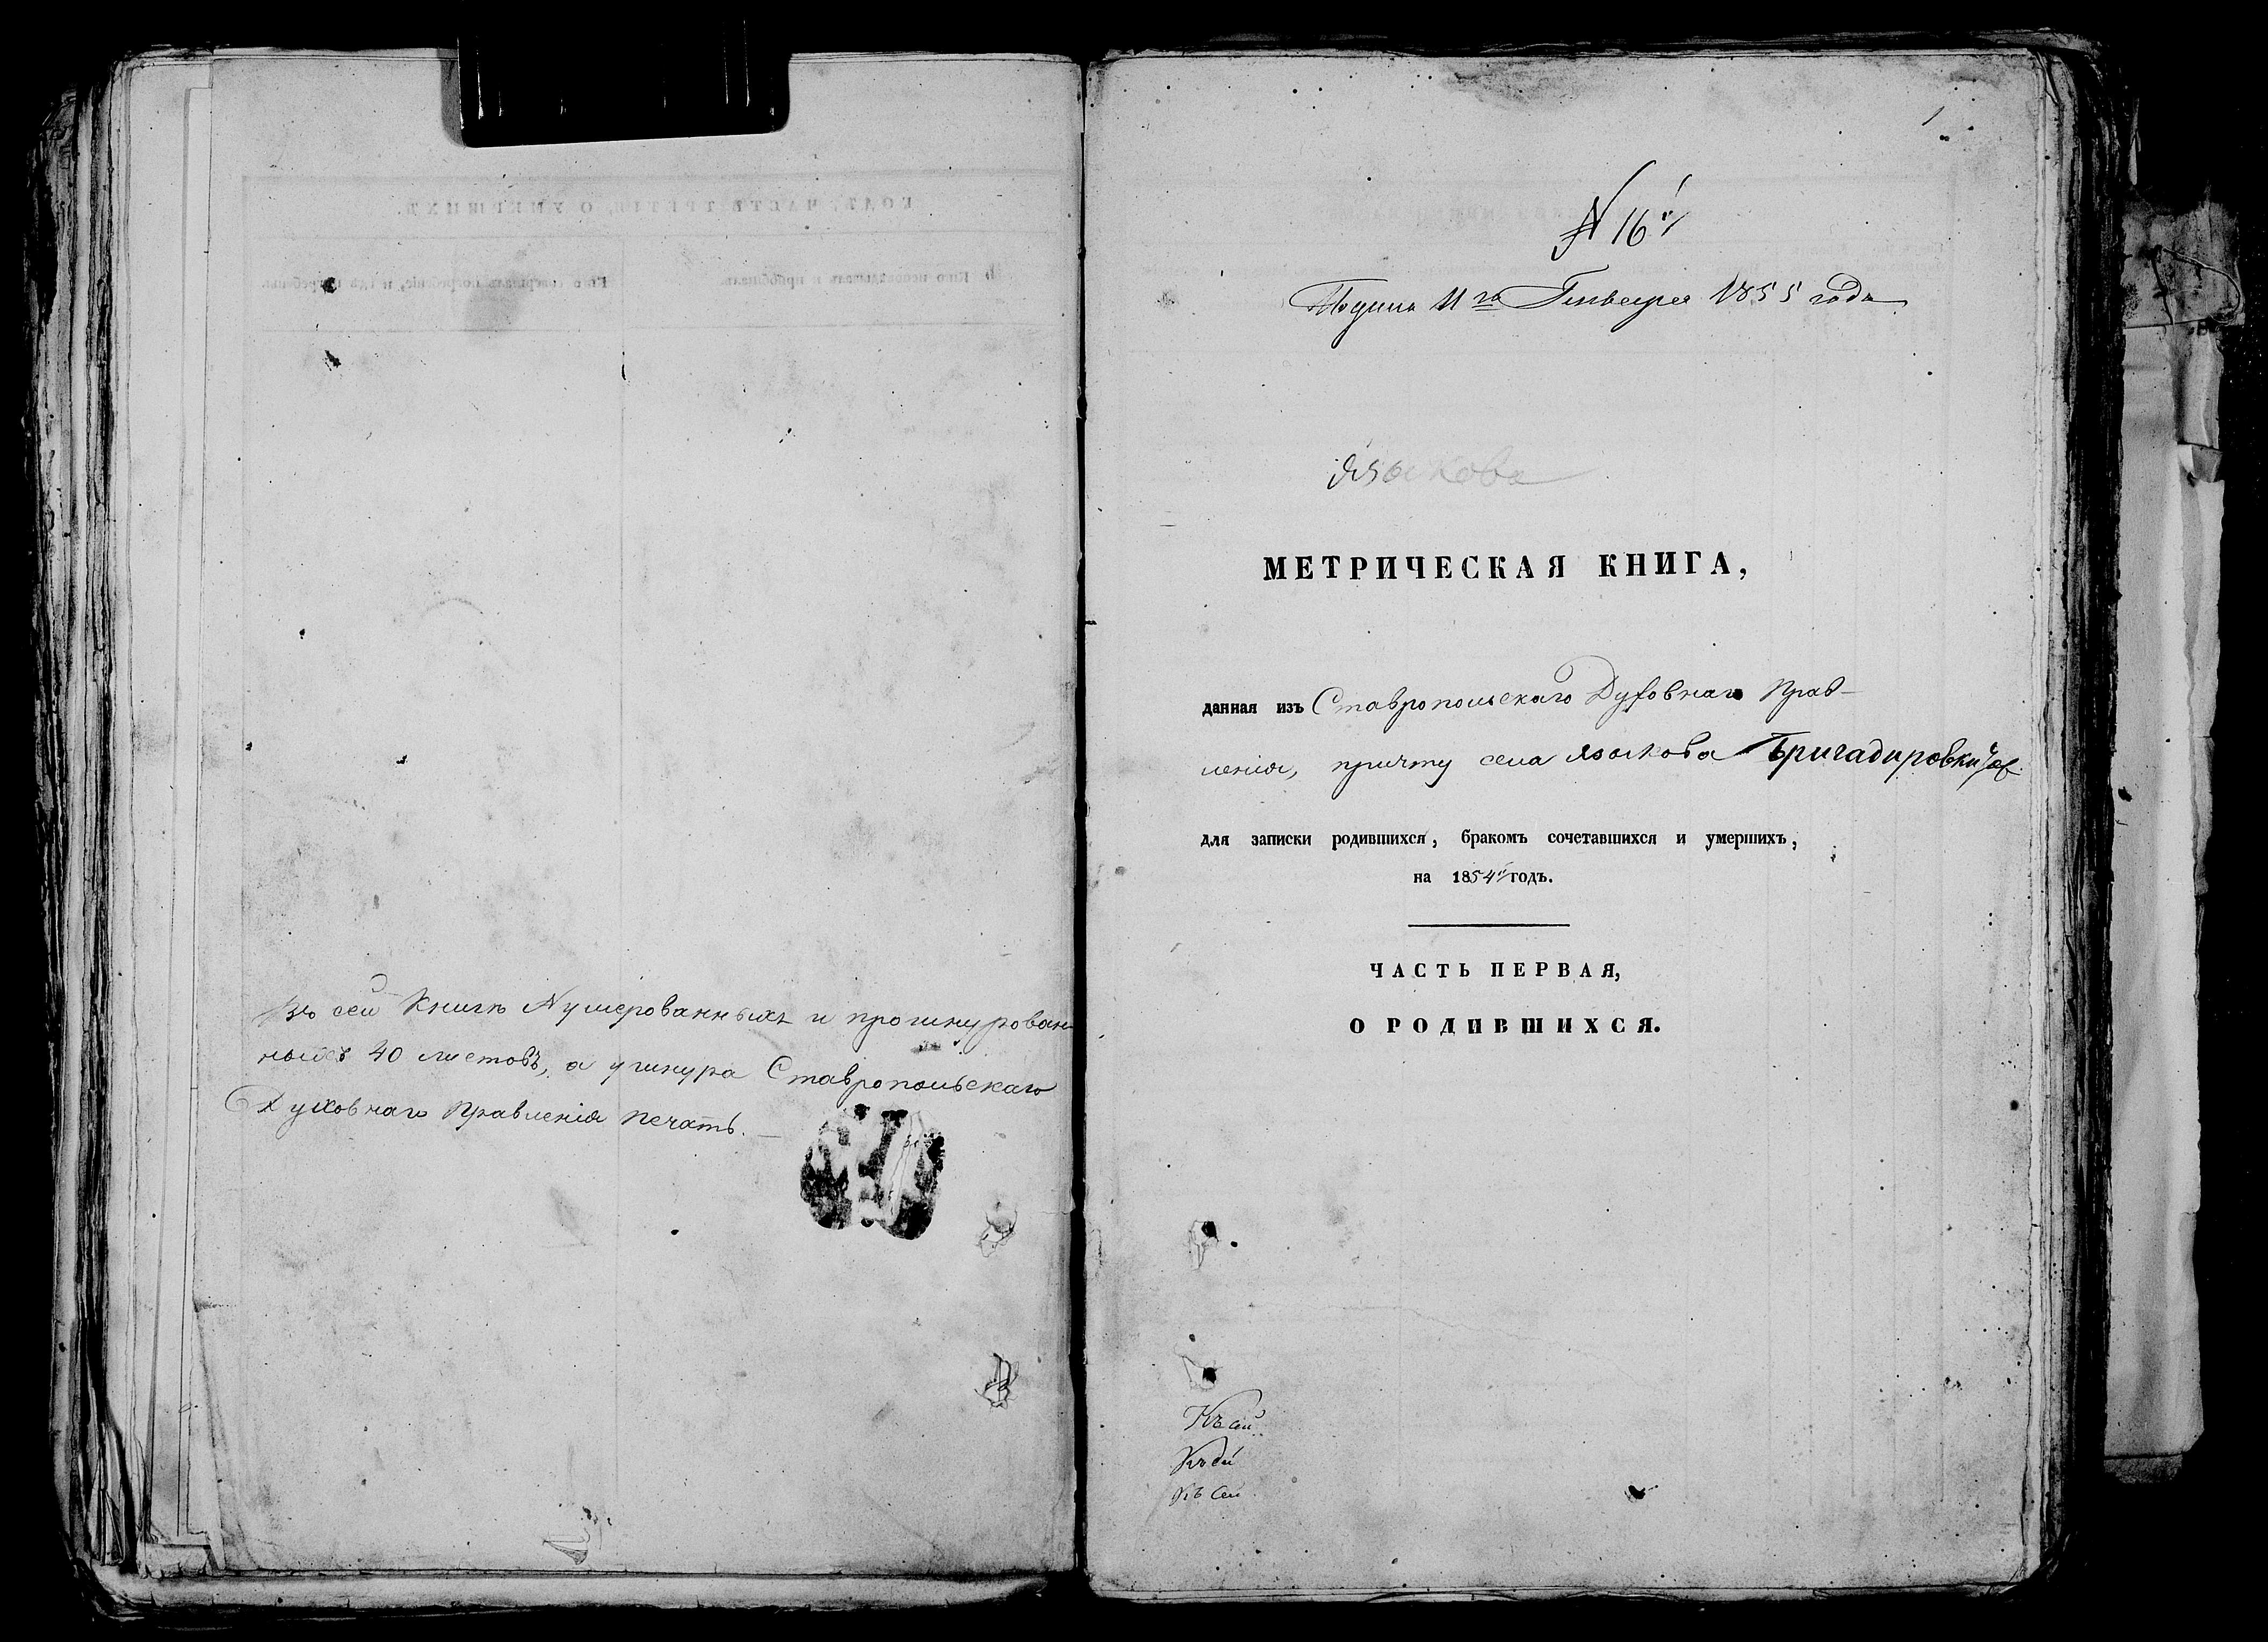 Въ сей Книгѣ Нумерованныхъ и прошнурован-
ныхъ 40 листовъ, а у шнура Ставропольскаго
Духовнаго Правленія печать.
1
N 16й
Подана 11го Генваря 1855 года
Языкова
МЕТРИЧЕСКАЯ КНИГА,
данная изъ Ставропольскаго Духовнаго Прав-
ленія, причту села Языкова Бригадировки
для записки родившихся, бракомъ сочетавшихся и умершихъ,
на 1854й годъ.
ЧАСТЬ ПЕРВАЯ,
О РОДИВШИХСЯ.
Къ сей
Къ сей
Къ сей